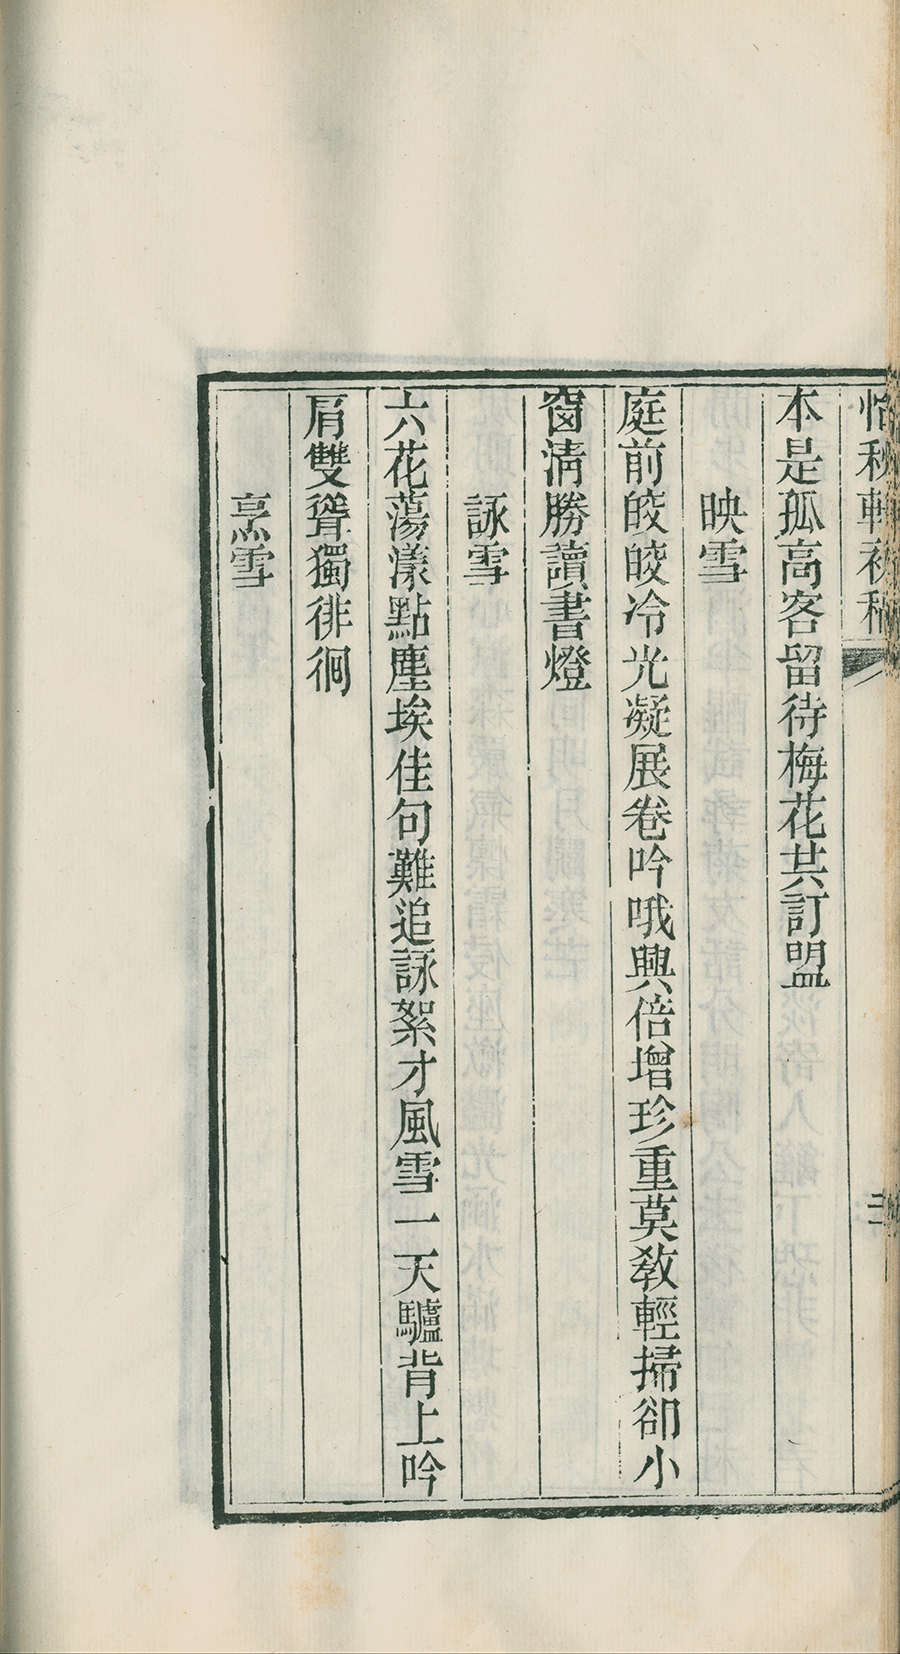 怡秋軒初稿
本是孤高客留待梅花共訂盟
映雪
庭前皎皎冷光凝展卷吟哦興倍增珍重莫敎輕掃卻小
窗淸勝讀書燈
詠雪
六花蕩漾點塵埃佳句難追詠絮才風雪一天驢背上吟
肩雙聳獨徘徊
烹雪